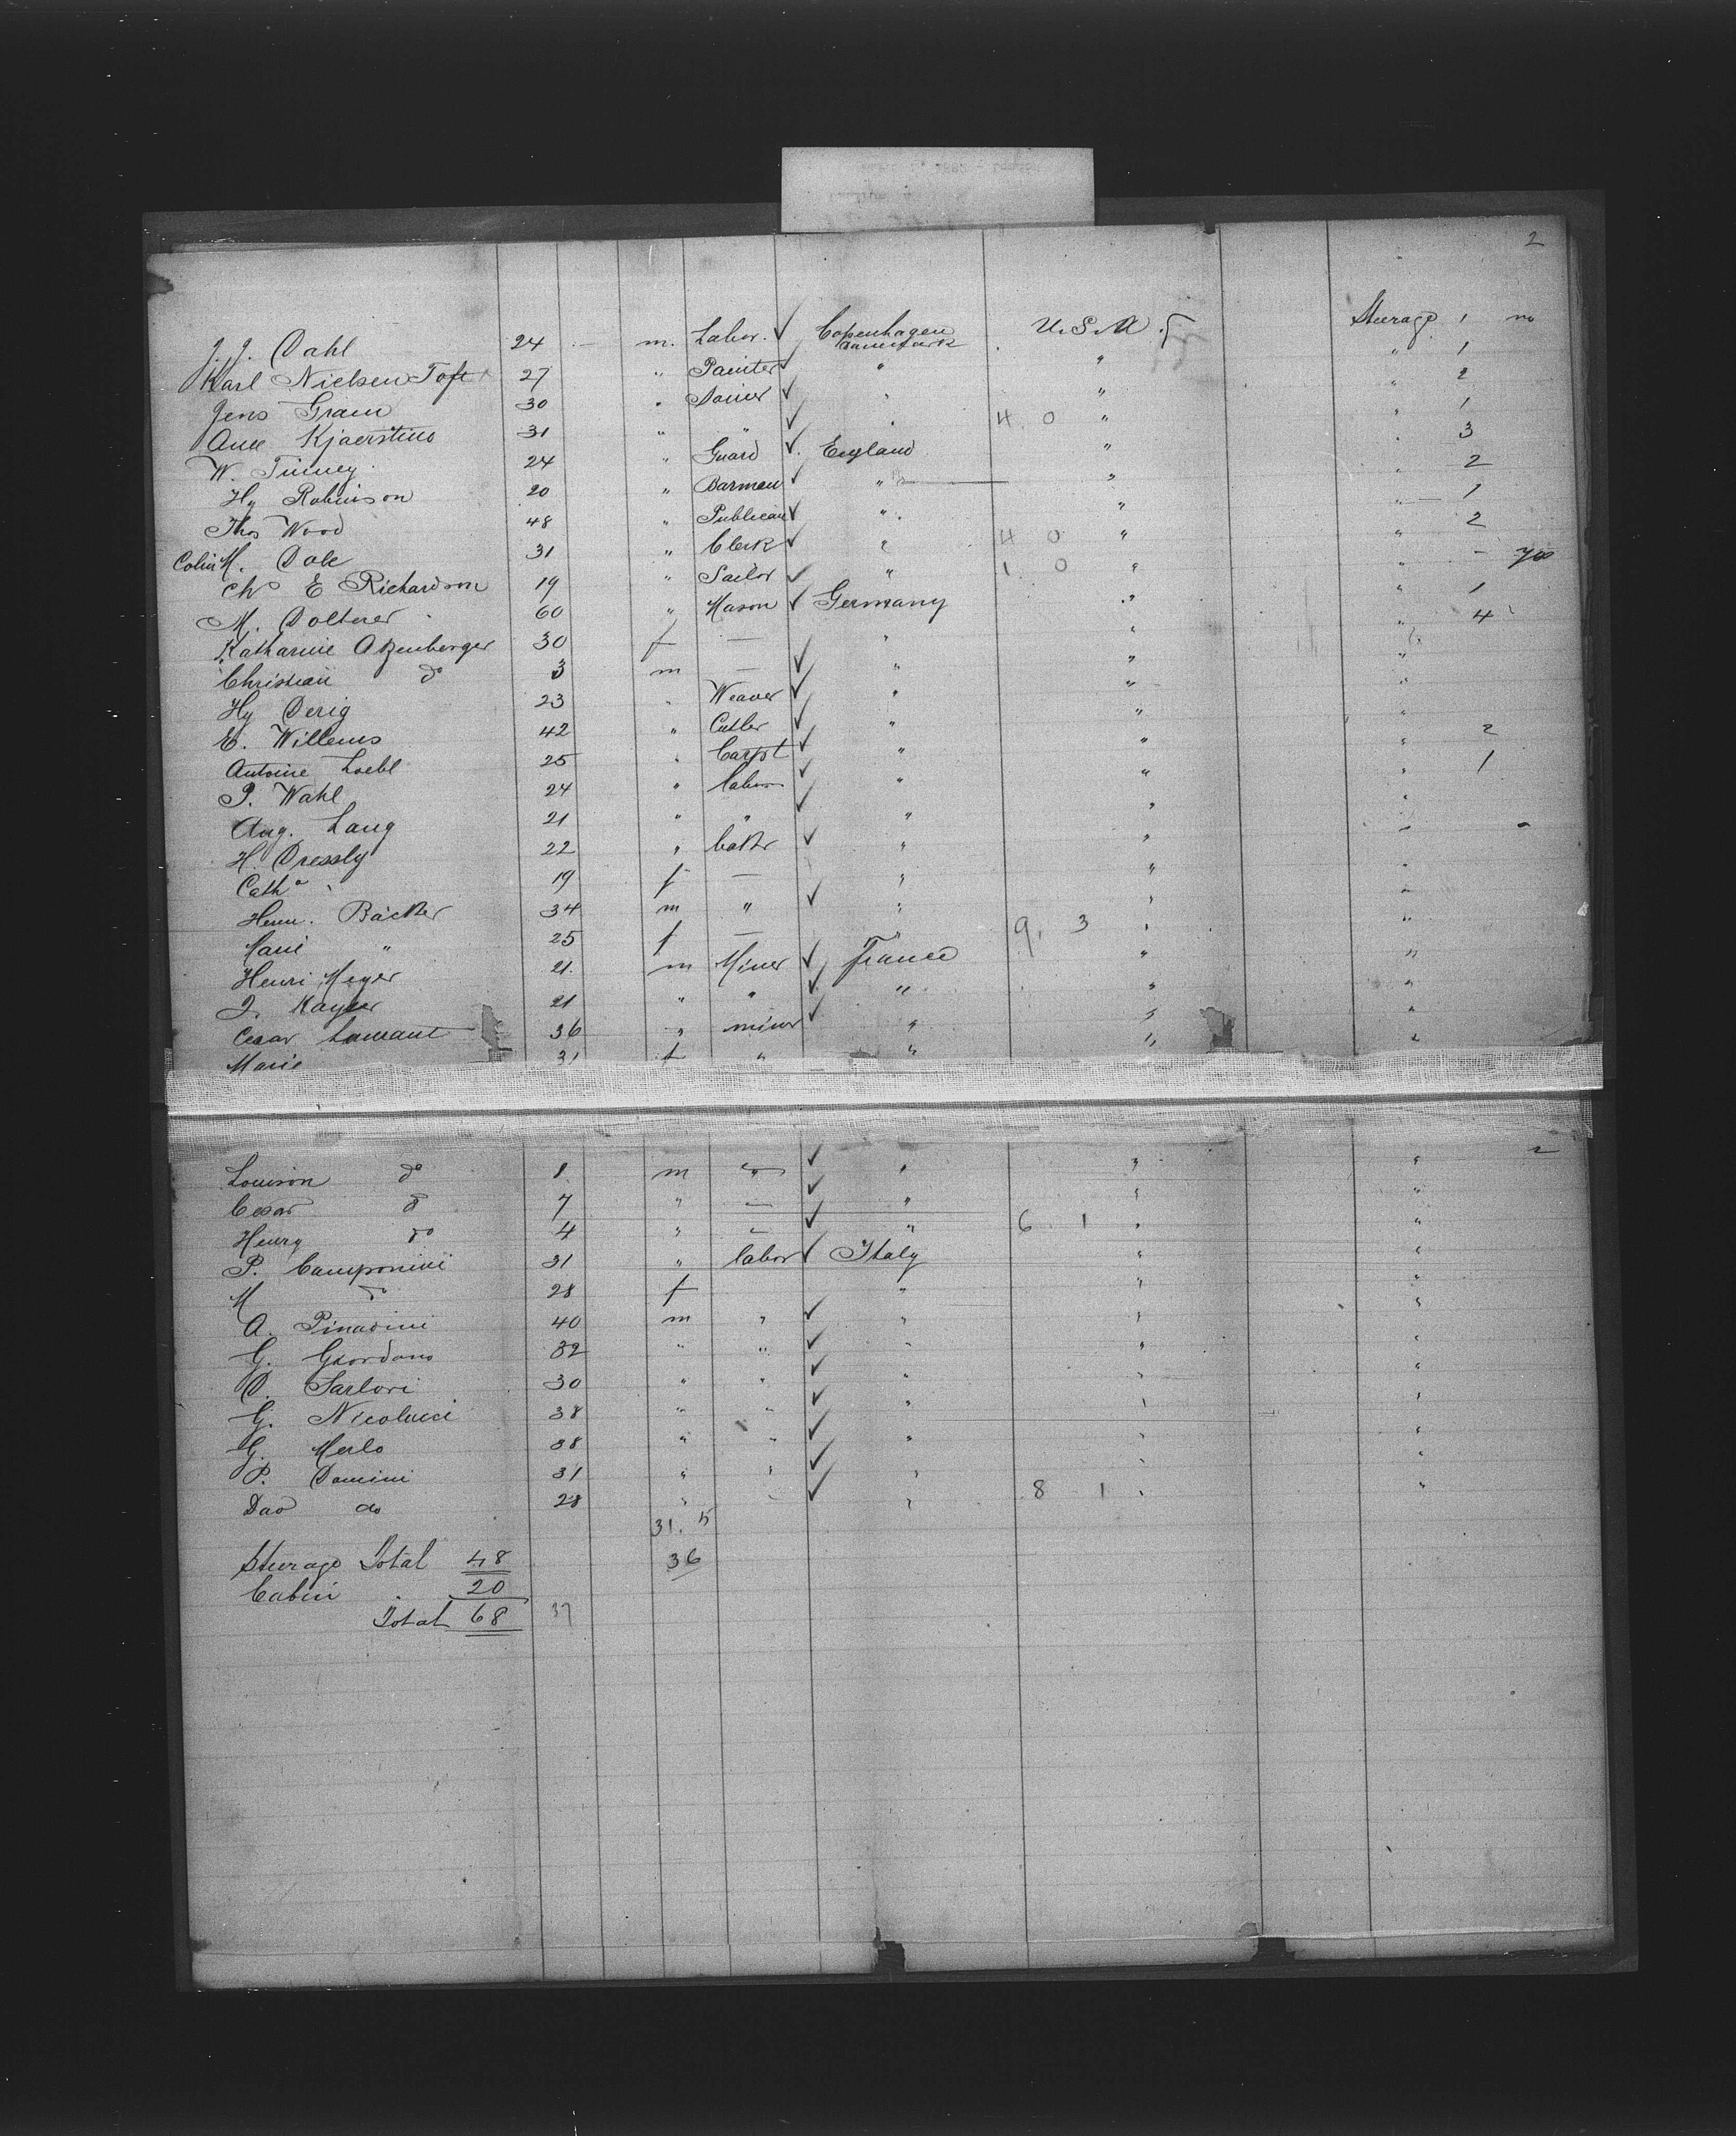 2
J. J. Dahl 24 — m. Labor. ✓ Copenhagen Danmark U.S.A. Steerage 1 no
Karl Nielsen Toft 27 " Painter ✓ " " " 1
Jens Gram 30 " ✓ " " " 2
Ane Kjaerstino 31 " " ✓ " 4 0 " " 1
W. Tinney 24 " Guard ✓ England " " 3
Hy Robinson 20 " Barman ✓ " " " 2
Thos Wood 48 " Publican ✓ " " " 1
Colin M. Dole 31 " Clerk ✓ " 4 0 " " 2
Chs E Richardson 19 " Sailor ✓ " 1 0 " " -
M. Dolterer 60 " Mason ✓ Germany " " 1
Katharine Atzenberger 30 f — " " " 4
Christian do 3 m — ✓ " " "
Hy Derig 23 " Weaver ✓ " " "
E. Willems 42 " Cutler ✓ " " "
Antoine Loebl 25 " Carpt ✓ " " " 2
P. Wahl 24 " labor ✓ " " " 1
Aug. Lang 21 " " ✓ " " "
H. Dressly 22 " baker ✓ " " "
Cath " 19 f — " " "
Herm. Bäcker 34 m " ✓ " " "
Marie " 25 f — " 9. 3 " "
Henri Meyer 21 m Miner ✓ France " "
J. Kayser 21 " " ✓ " " "
Cesar Laurant 36 " miner ✓ " " "
Marie 31 f " " " "
Louison do 1 m " ✓ " " " 2
Cesar do 7 " — ✓ " " "
Henry do 4 " — ✓ " 6 1 " "
P. Camponini 31 " labor ✓ Italy " "
M do 28 f " " "
A. Pinadini 40 m " ✓ " " "
G. Giordano 32 " " ✓ " " "
D. Sartori 30 " " ✓ " " "
G. Nicolucci 38 " " ✓ " " "
G. Merlo 38 " " ✓ " " "
P. Domini 31 " " ✓ " " "
Dao do 28 " " ✓ " 8 1 " "
31. 5
Steerage Total 48 36
Cabin 20
Total 68 37